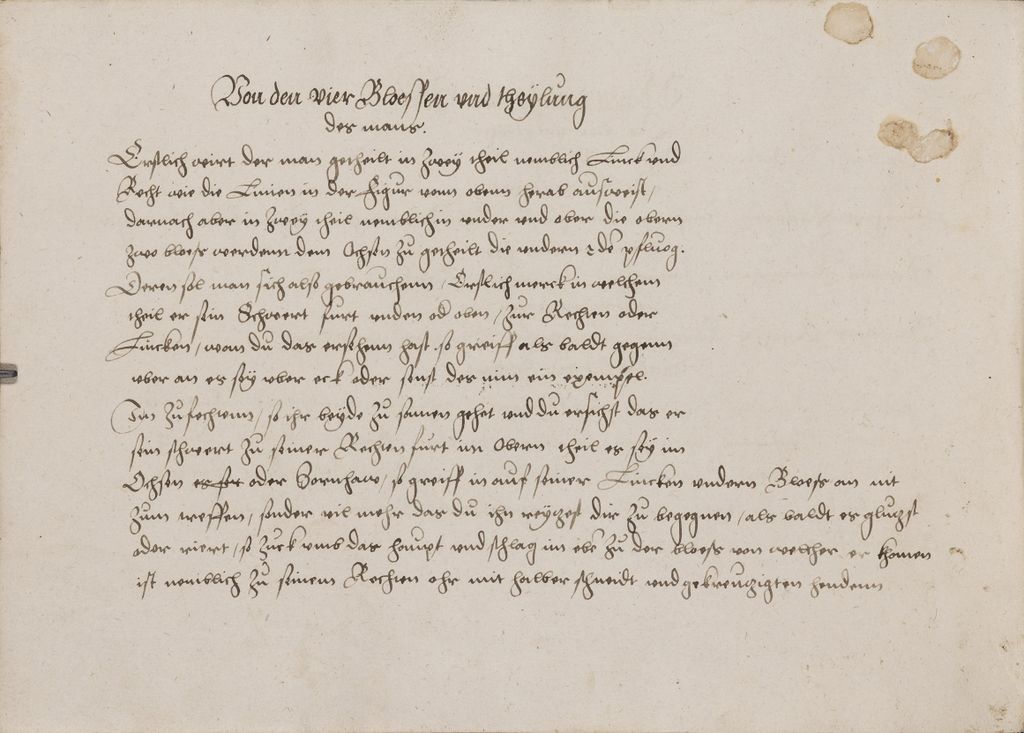 Von den vier Bloessen und theÿlung
des mans.
Erstlich wirt der man getheilt in zweÿ theil nemblich Linck und
Recht wie die Linien in der Figur vonn obenn herab ausweist /
darnach aber in zweÿ theil nemblich in under und ober die obern
zwo bloess werdenn dem Ochsen zu getheilt die undern de pfluog.
Deren sol man sich also gebrauchenn / Erstlich merck in welchem
theil er sein Schwert furt unden od oben / zur Rechten oder
Lincken / wan du das ersehenn hast so greiff als baldt gegenn
uber an es seÿ uber eck oder sonst des nim ein exempel.
Im zufechtenn / so ihr beÿde zu samen gehet und du ersichst das er
sein schwert zu seiner Rechten furt im Obern theil es seÿ im
Ochsen oder Zornhaw / so greiff in auf seiner Lincken undern Bloess an nit
zum treffen / sonder vil mehr das du ihn reÿtzest dir zu begegnen / als baldt es glutzst
oder riert / so zuck umb das haupt und schlag im ebe zu der bloess von welcher er khomen
ist nemblich zu seinem Rechten ohr mit halber schneidt und gekreutzigten hendenn